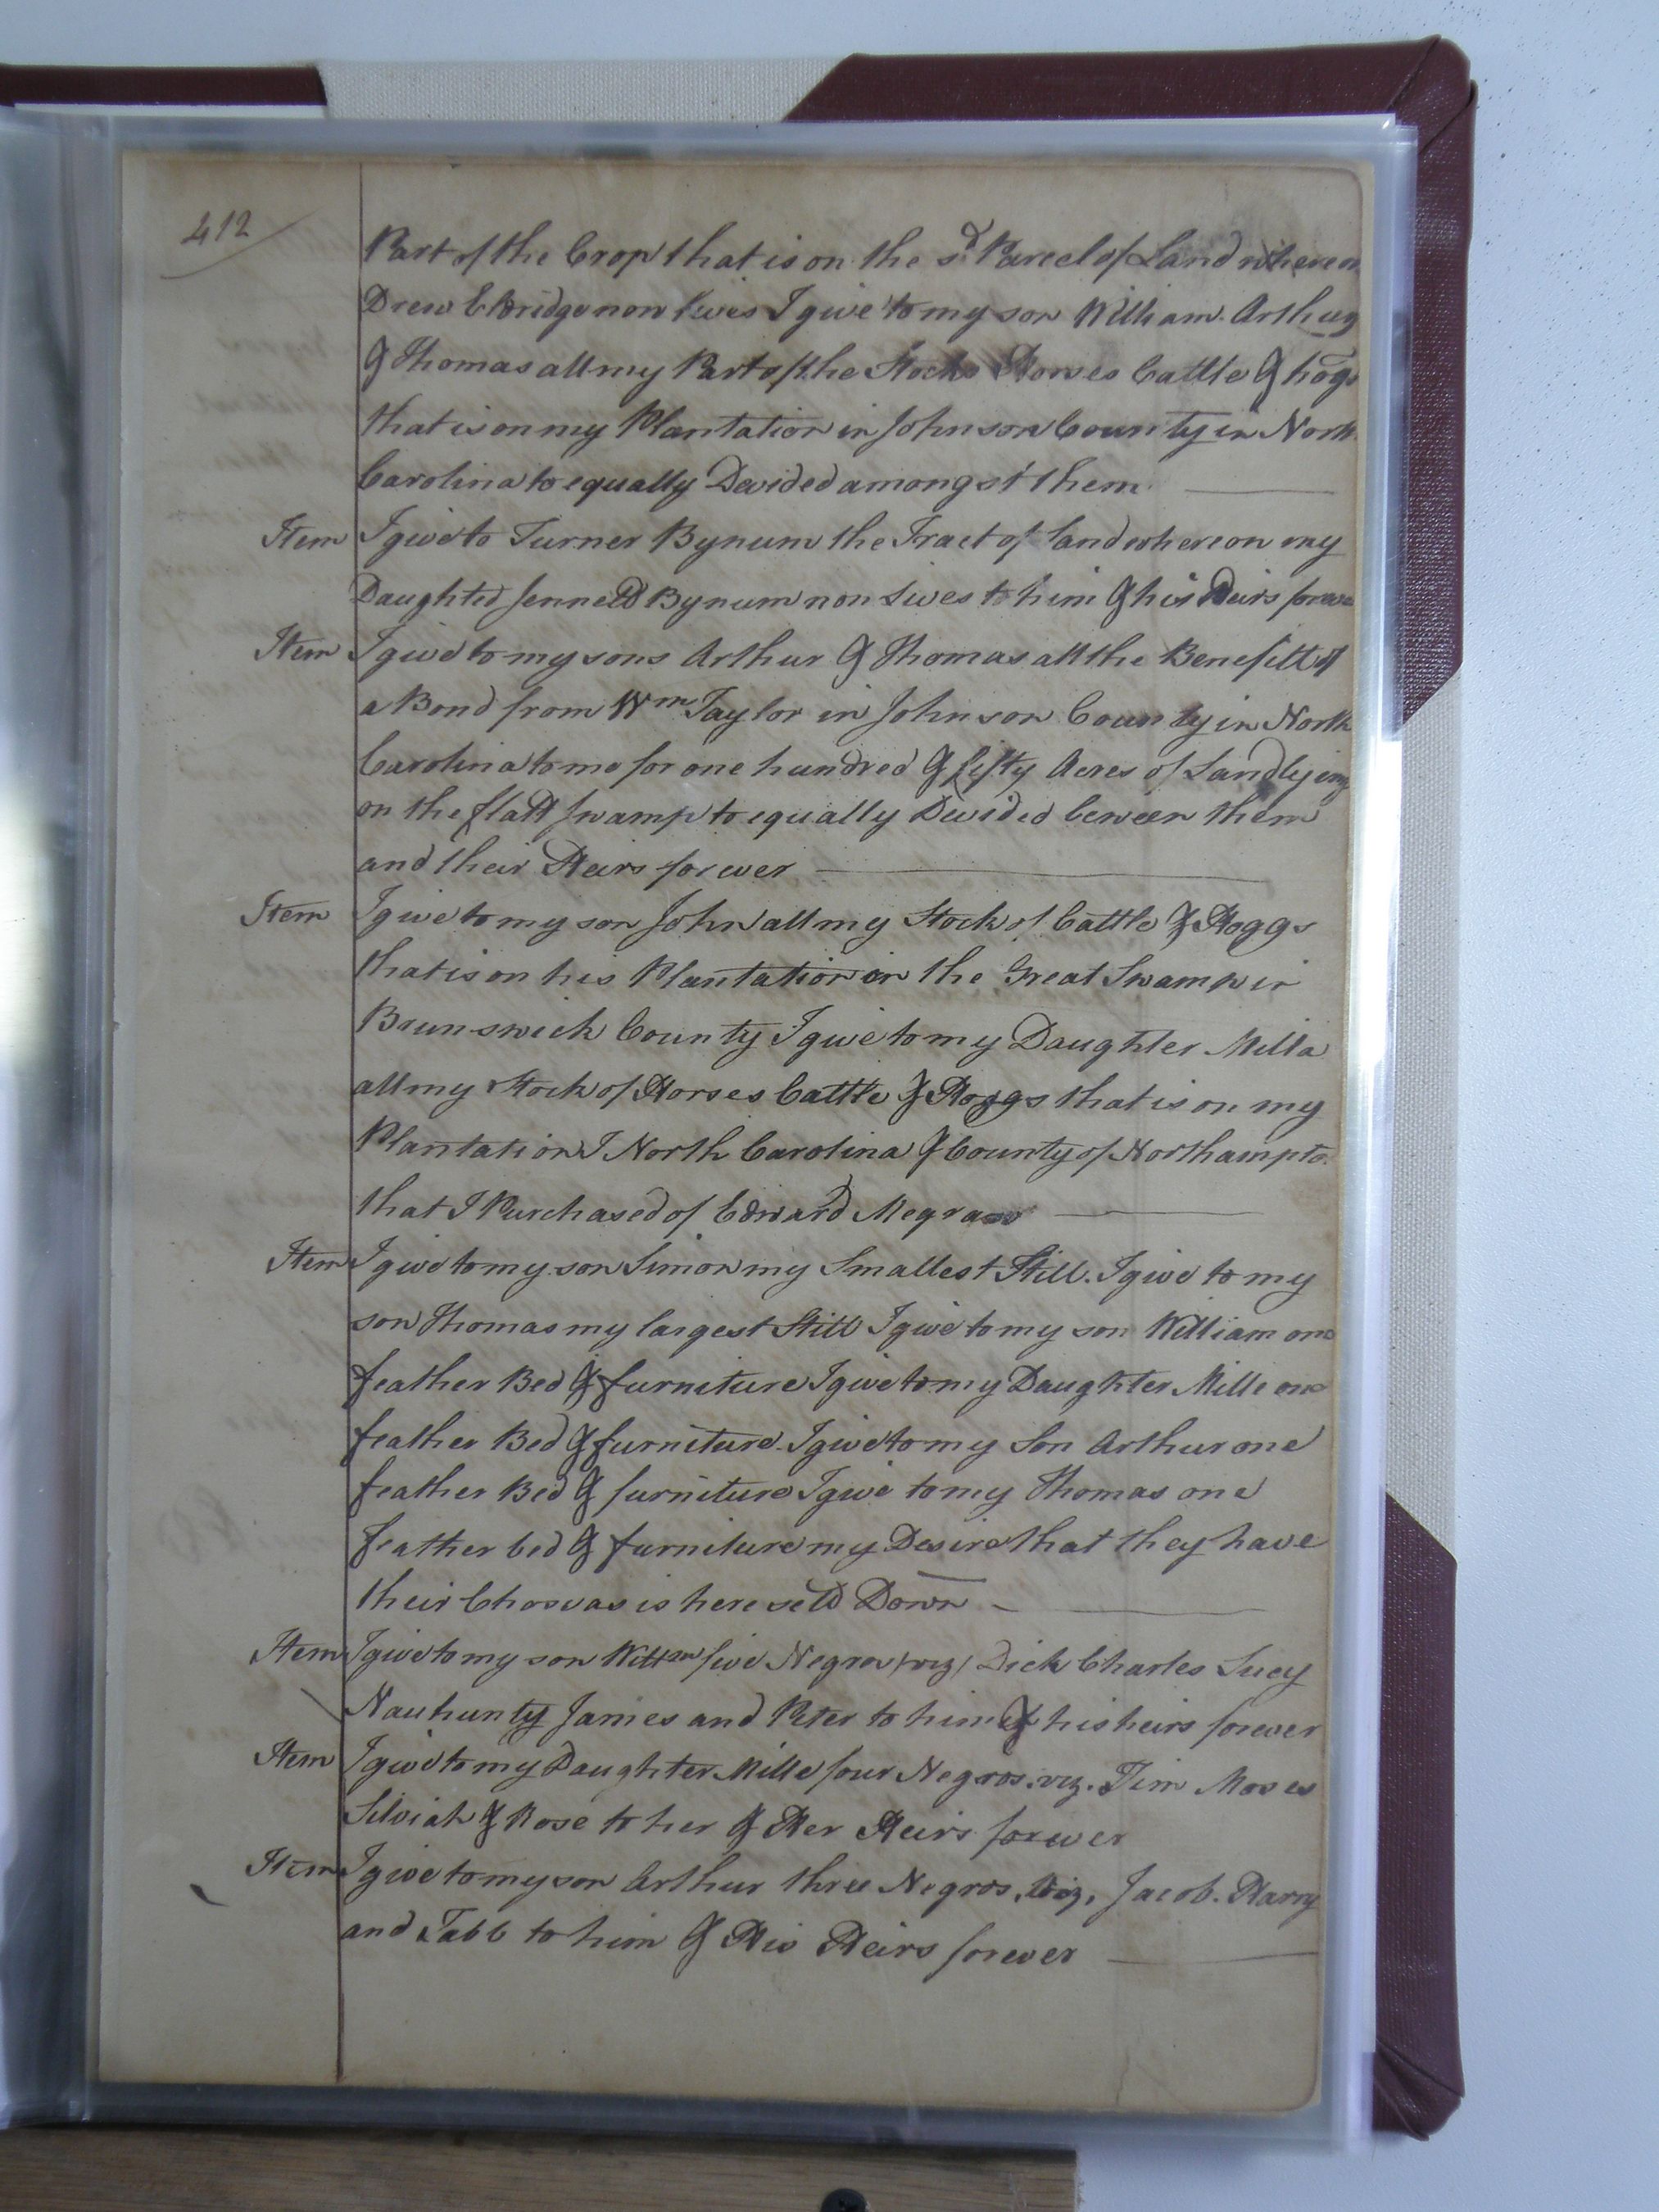 412
Part of the Crop that is on the sd Parcel of Land whereon
Drew Eldridge now lives I give to my son William. Arthur
& Thomas all my Part of the Stocks Horses Cattle & hogs
that is on my Plantation in Johnson County in North
Carolina to equally Devided amongst them
Item I give to Turner Bynum the Tract of land whereon my
Daughted Jennett Bynum now Lives to him & his Heirs forever
Item I give to my sons Arthur & Thomas all the Benefitt of
a Bond from Wm Taylor in Johnson County in North
Carolina to me for one hundred & fifty Acres of Land lying
on the flatt Swamp to equally Devided beween them
and their Heirs forever
Item I give to my son John all my Stock of Cattle & Hoggs
that is on his Plantation on the Great Swamp in
Brunswick County I give to my Daughter Milla
all my Stock of Horses Cattle & Hoggs that is on my
Plantation I North Carolina & County of Northampto
that I Purchased of Edward
Item I give to my son Simon my Smallest Still. I give to my
son Thomas my largest Still I give to my son William one
feather Bed & furniture I give to my Daughter Mille one
feather Bed & furniture. I give to my Son Arthur one
feather Bed & furniture I give to my Thomas one
feather bed & furniture my Desire that they have
their as is here sett Down
Item I give to my son Willm five Negros viz Dick Charles Lucy
Nauhunty James and Peter to him & his heirs forever
Item I give to my Daughter Mille four Negros. viz. Tim Moses
Silviah & Rose to her & Her Heirs forever
Item I give to my son Arthur three Negros, Viz, Jacob. Harry
and Tabb to him & His Heirs forever